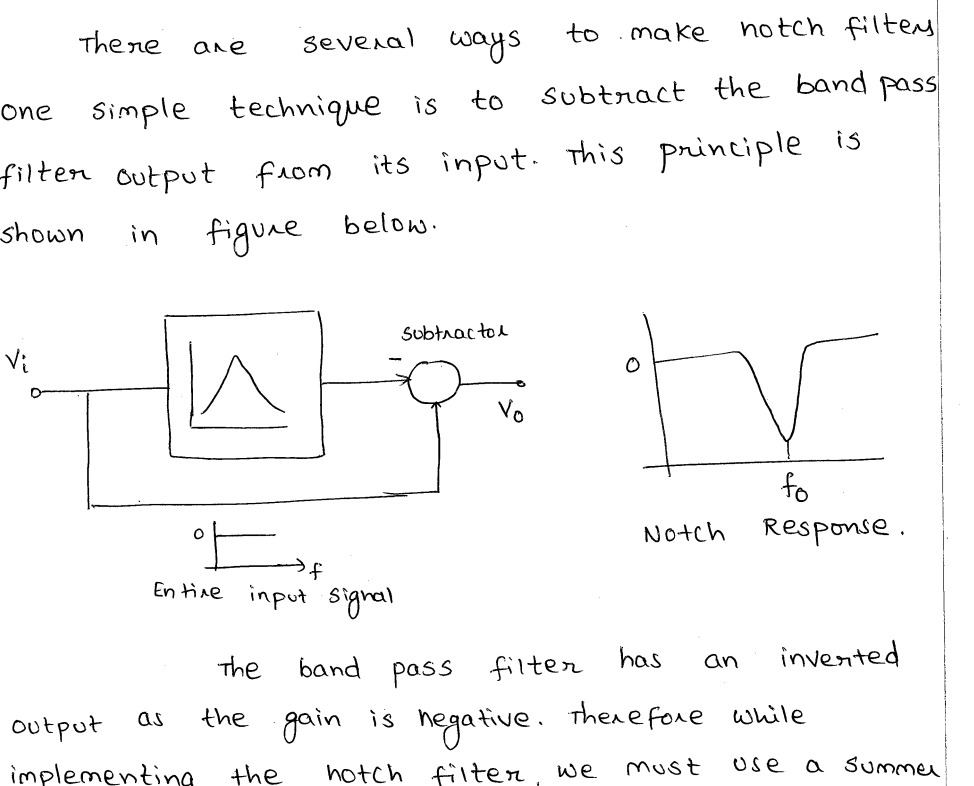 There are several ways to make notch filters
one simple technique is to subtract the band pass
filter output from its input. This principle is
shown in figure below.
Subtractor
Vi
-
0
Vo
0
f0
f
Notch Response.
Entire input signal
The band pass filter has an inverted
output as the gain is negative. Therefore while
implementing the notch filter, we must use a summer